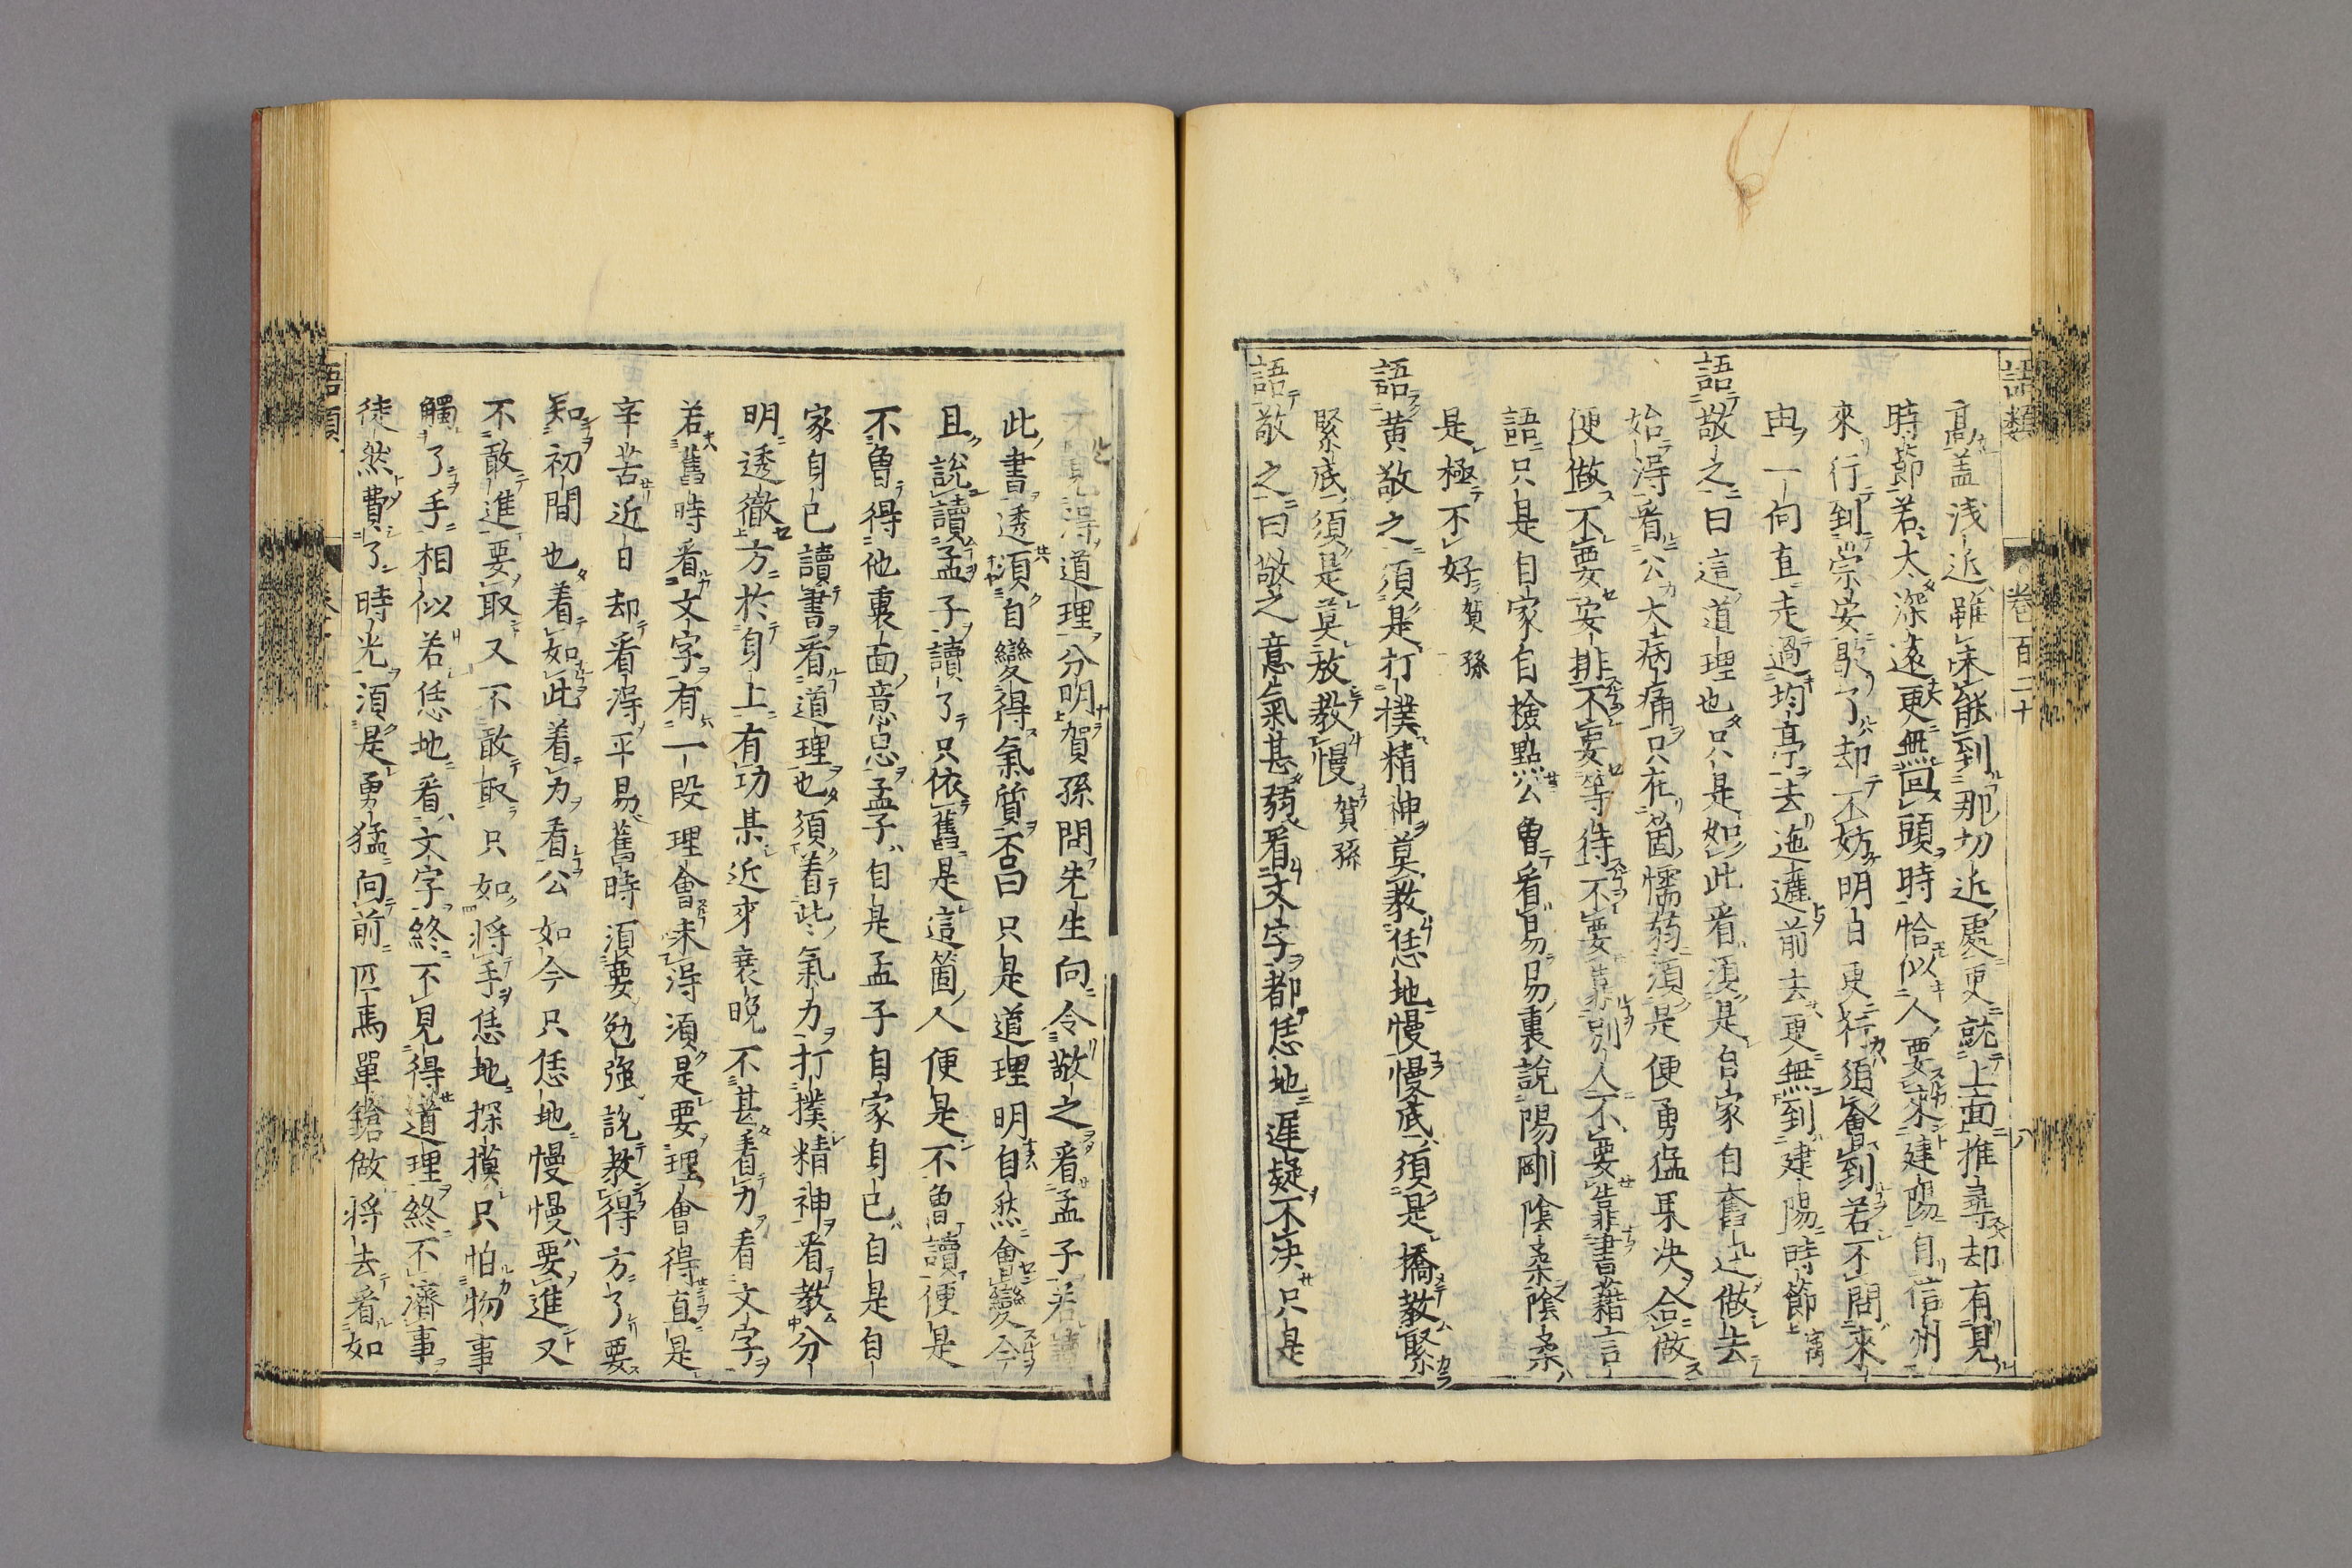 語類 卷百二十 八
高盖浅近雖未能到那切近處更就上面推尋却有見
時節若太深遠更無回頭時恰似人要來建陽自信州
來行到崇安歇了却不妨明日更行須會到若不問來
由一向直走過均亭去迤邐前去更無到建陽時節㝢
語敬之曰這道理也只是如此看須是自家自奮迅做去
始得看公大病痛只在箇懦弱須是便勇猛果決合做
便做不要安排不要等待不要靠別人不要靠書藉言
語只是自家自檢點公曾看易易裏說陽剛陰柔陰柔
是極不好賀孫
語黄敬之須是打撲精神莫教恁地慢慢底須是撟教緊
緊底須是莫放教慢賀孫
語敬之曰敬之意氣甚弱看文字都恁地遲疑不決只是
不見得道理分明賀孫問先生向令敬之看孟子若讀
此書透須自變得氣質否曰只是道理明自然會變今
且說讀孟子讀了只依舊是這箇人便是不曾讀便是
不曾得他裏面意思孟子自是孟子自家身己自是自
家身己讀書看道理也須着此氣力打撲精神看教分
明透徹方於身上有功某近來衰晚不甚着力看文字
若舊時看文字有一段理會未得須是要理會得直是
辛苦近日却看得平易舊時須要勉强說教得方了要
知初間也着如此着力看公如今只恁地慢慢要進又
不敢進要取又不敢取只如將手恁地探摸只怕物事
觸了手相似若恁地看文字終不見得道理終不濟事
徒然費了時光須是勇猛向前匹馬單鎗做將去看如
語類